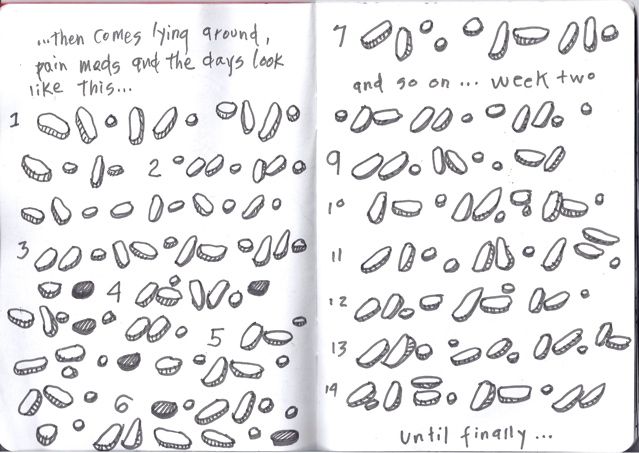 ...then comes lying around,
pain meds and the days look
like this...
1
2
3
4
5
6
7
and so on... week two
9
10
11
12
13
14
until finally...